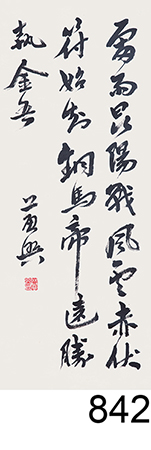 雷雨昆陽戰風雲赤伏
符始知銅馬帝遠勝
執金吾
842